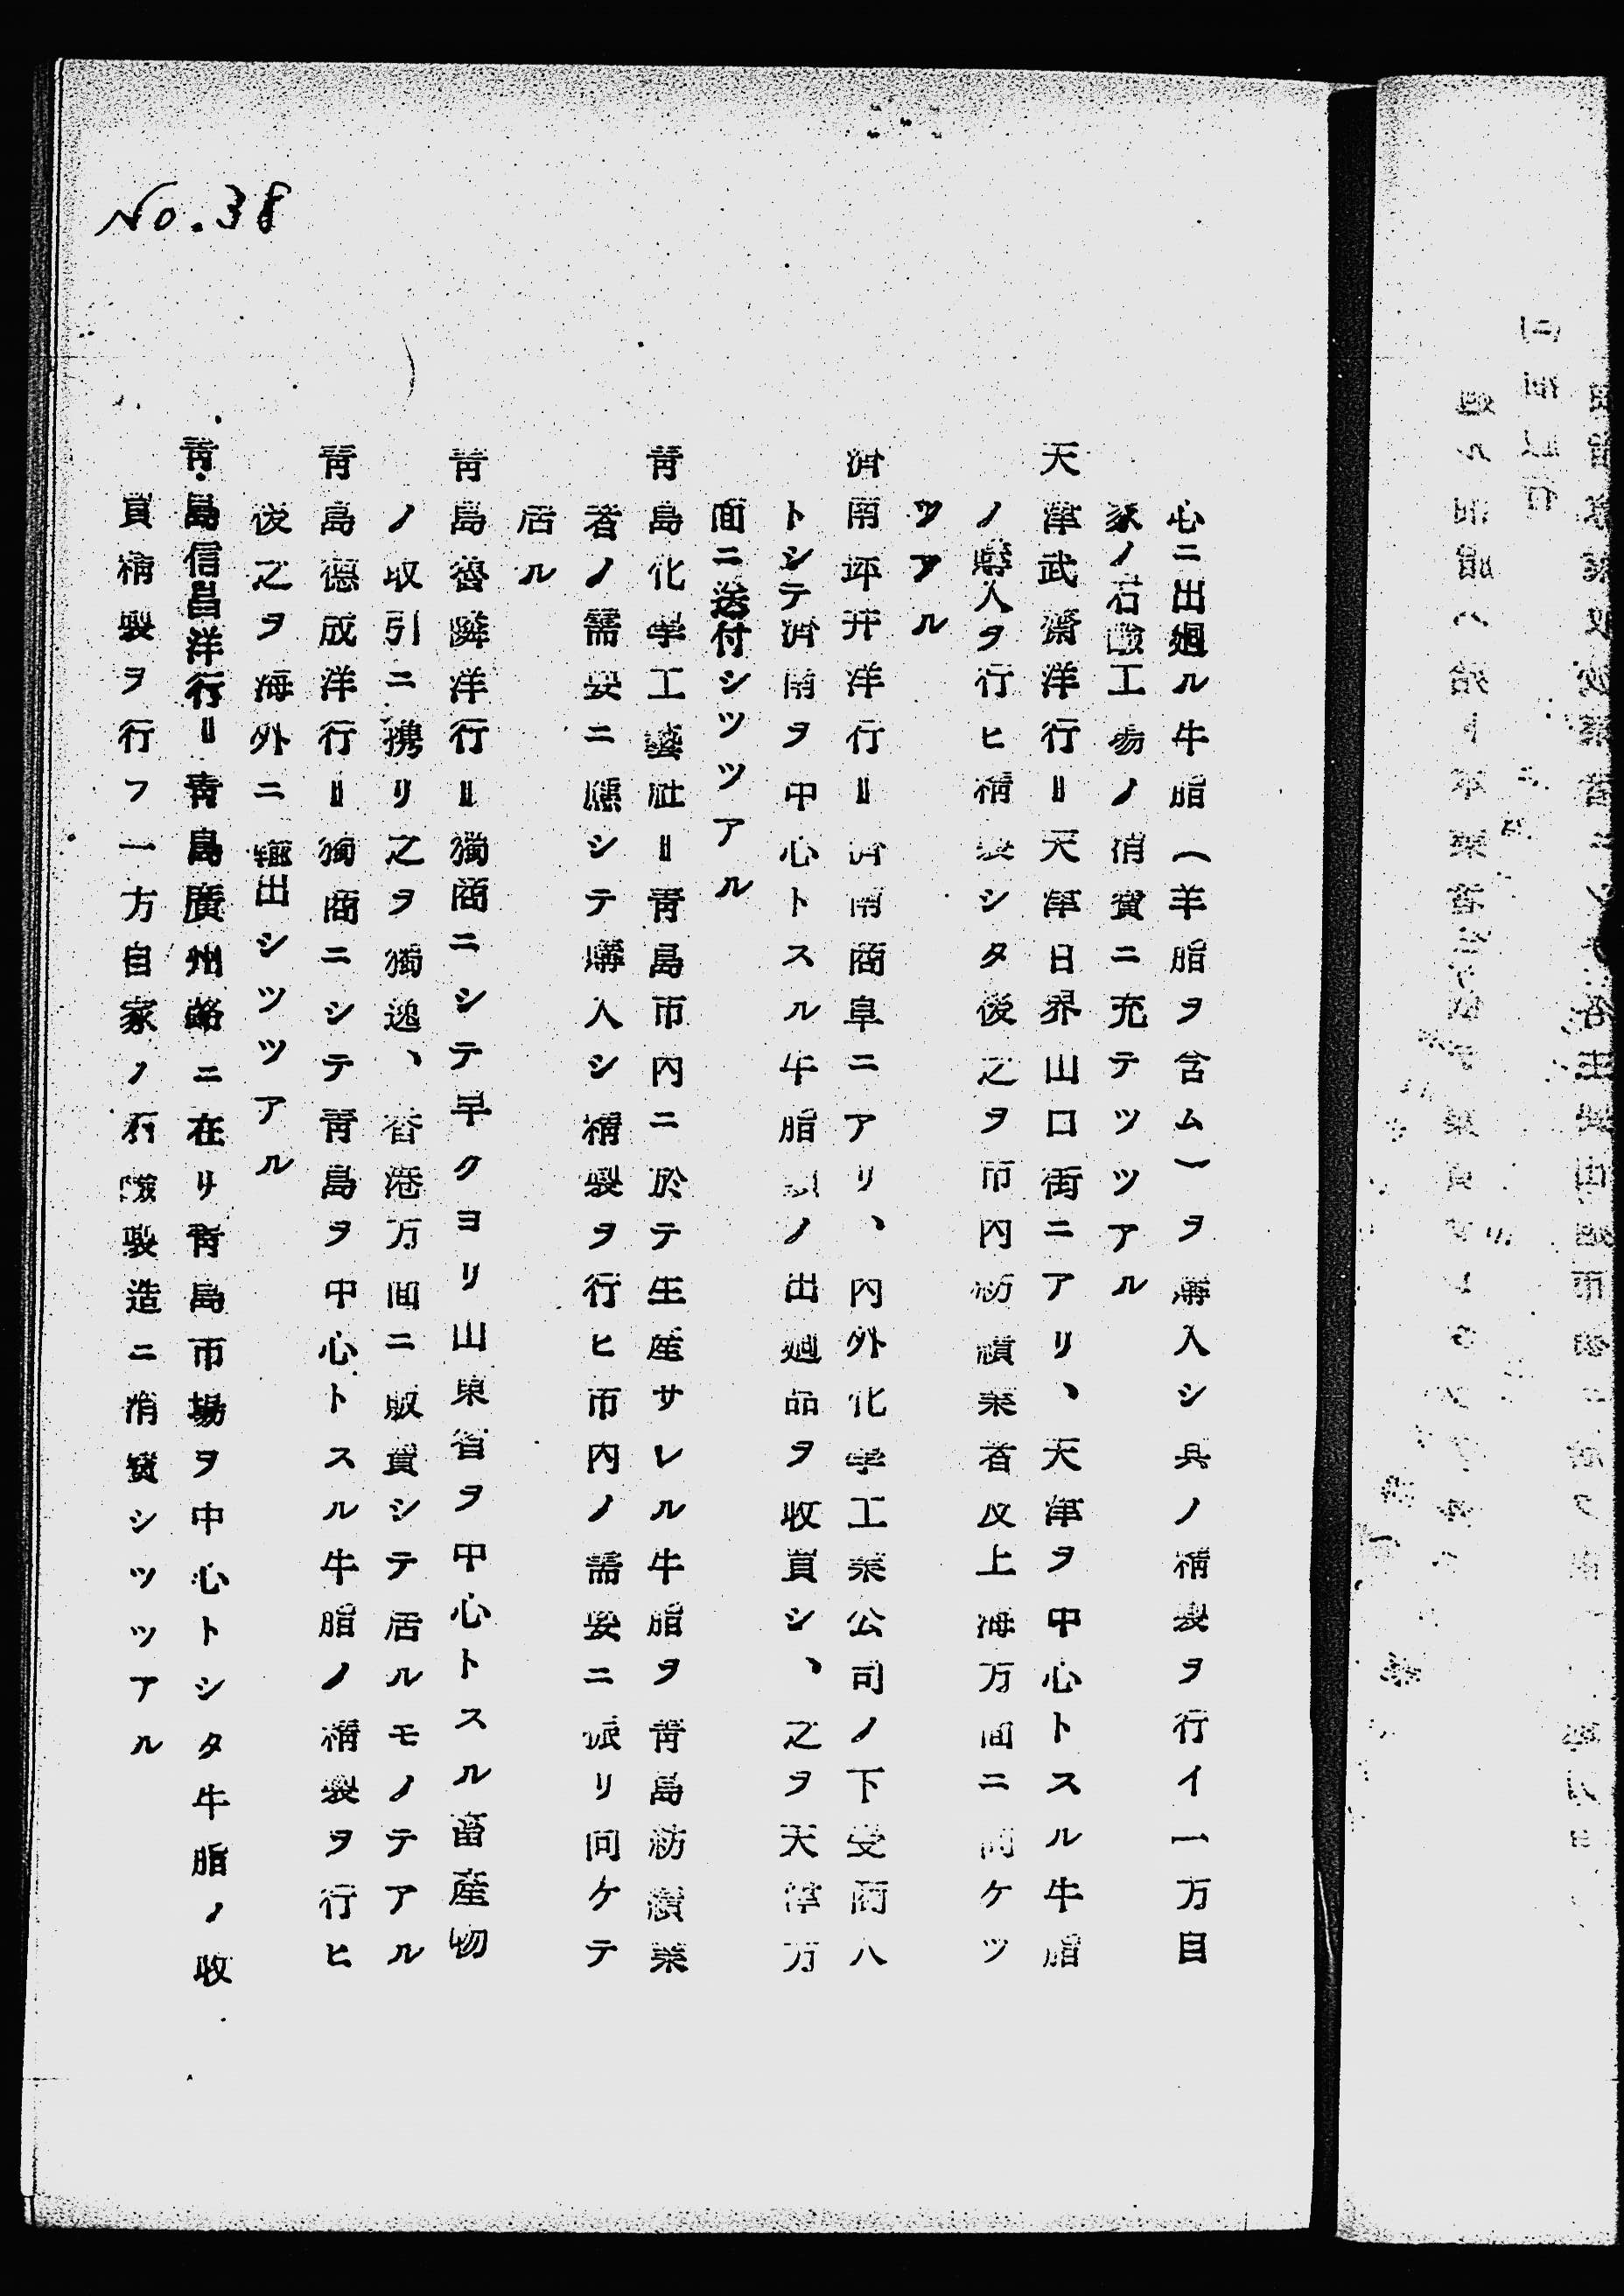 No.38
心ニ出廻ル牛脂（羊脂ヲ含ム）ヲ購入シ其ノ精製ヲ行イ一方自
家ノ石鹼工場ノ消費ニ充テツツアル
天津武齋洋行＝天津日界山口街ニアリ、天津ヲ中心トスル牛脂
ノ購入ヲ行ヒ精製シタ後之ヲ市内紡績業者及上海方面ニ向ケツ
ツアル
濟南坪井洋行＝濟南商阜ニアリ、內外化学工業公司ノ下受商ハ
トシテ濟南ヲ中心トスル牛脂ノ出廻品ヲ收買シ、之ヲ天津方
面ニ送付シツツアル
靑島化学工藝社＝靑島市內ニ於テ生産サレル牛脂ヲ靑島紡績業
者ノ需要ニ應シテ購入シ精製ヲ行ヒ市内ノ需要ニ振リ向ケテ
居ル
靑島魯隣洋行＝獨商ニシテ早クヨリ山東省ヲ中心トスル畜産物
ノ取引ニ携リ之ヲ獨逸、香港方面ニ販賣シテ居ルモノテアル
靑島德成洋行＝獨商ニシテ靑島ヲ中心トスル牛脂ノ精製ヲ行ヒ
後之ヲ海外ニ輸出シツツアル
靑島信昌洋行＝靑島廣州路ニ在リ靑島市場ヲ中心トシタ牛脂ノ收
買精製ヲ行フ一方自家ノ石鹼製造ニ消費シツツアル